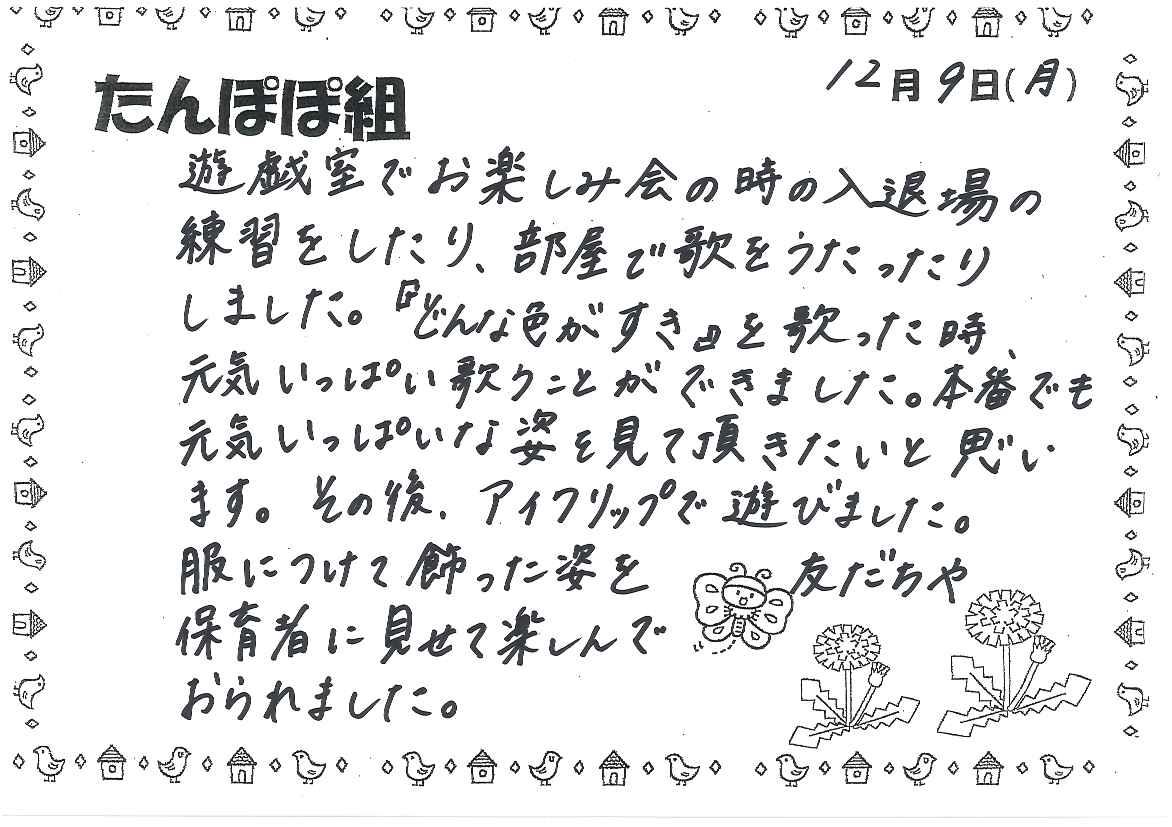 たんぽぽ組
12月9日(月)
遊戯室でお楽しみ会の時の入退場の
練習をしたり、部屋で歌をうたったり
しました。『どんな色がすき』を歌った時、
元気いっぱい歌うことができました。本番でも
元気いっぱいな姿を見て頂きたいと思い
ます。その後、アイフリップで遊びました。
服につけて飾った姿を友だちや
保育者に見せて楽しんで
おられました。